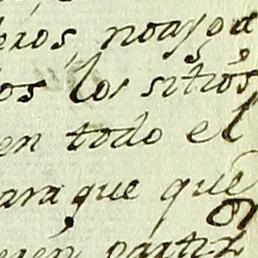 eros, no aygа
os los sitios
en todo el
ara que que
eren partir